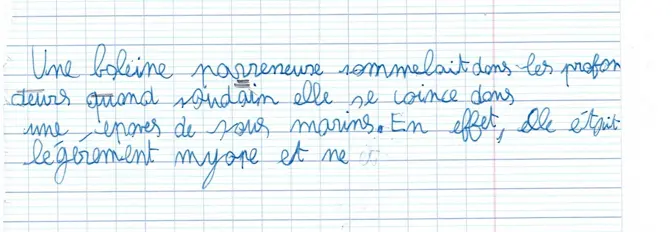 Une baleine paresseuse sommelait dans les profon
deurs quand soudain elle se coince dans
une épares de sous marins. En effet, elle était
légèrement myope et ne